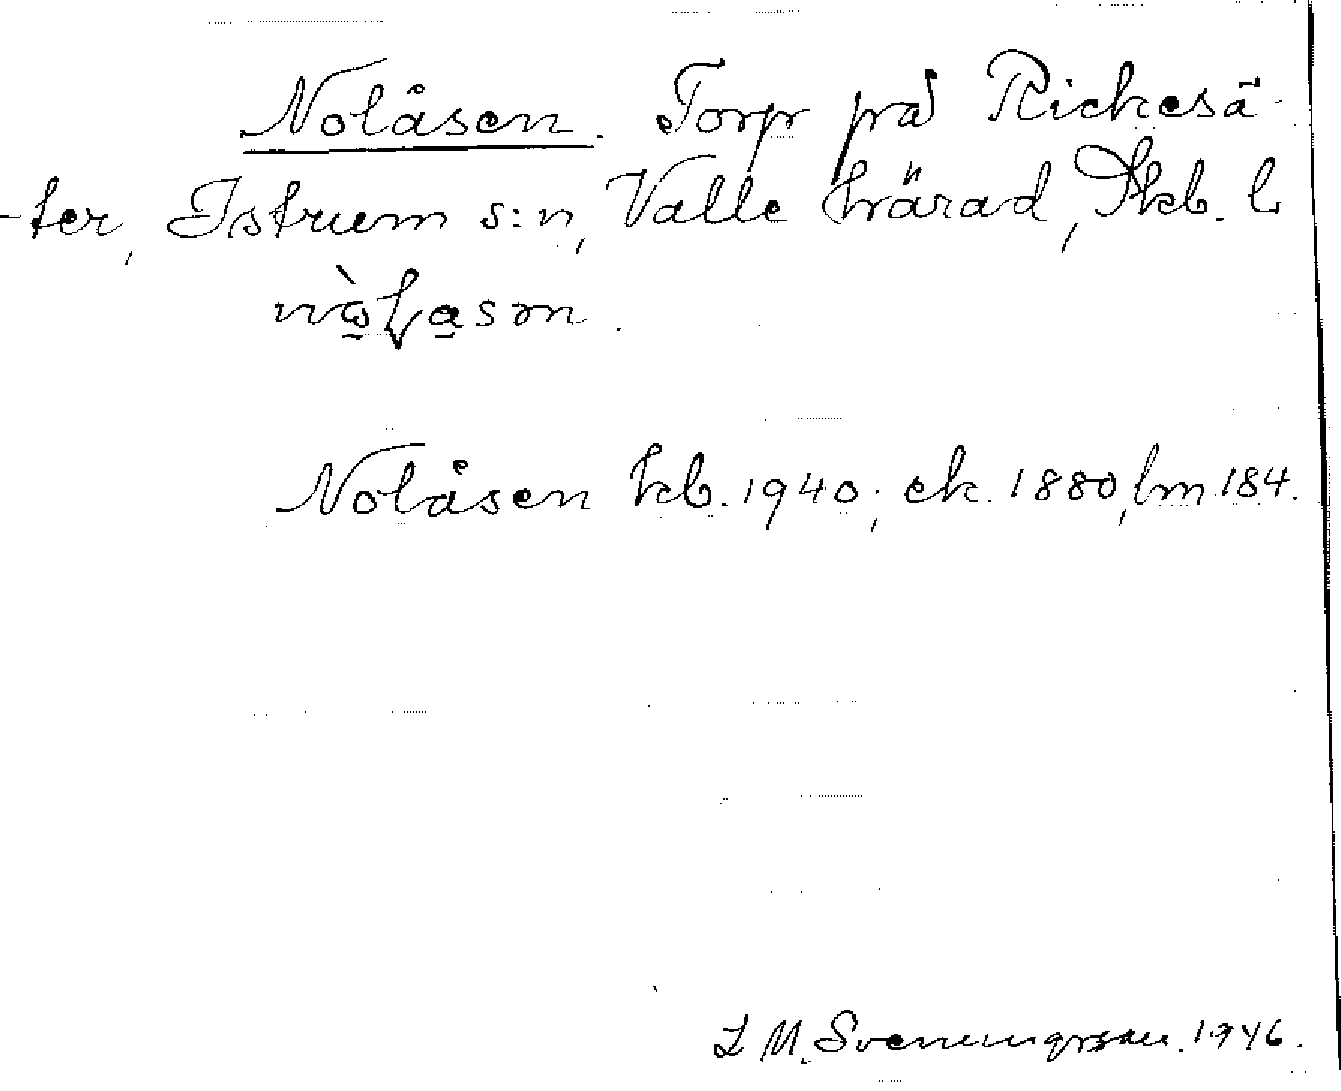 Nolåsen. Torp på Rickesä-
-ter, Istrum s:n, Valle härad, Skb. l
Nolåsen kb. 1940; ek. 1880, lm 184.
L M. Svenungsson. 1946.